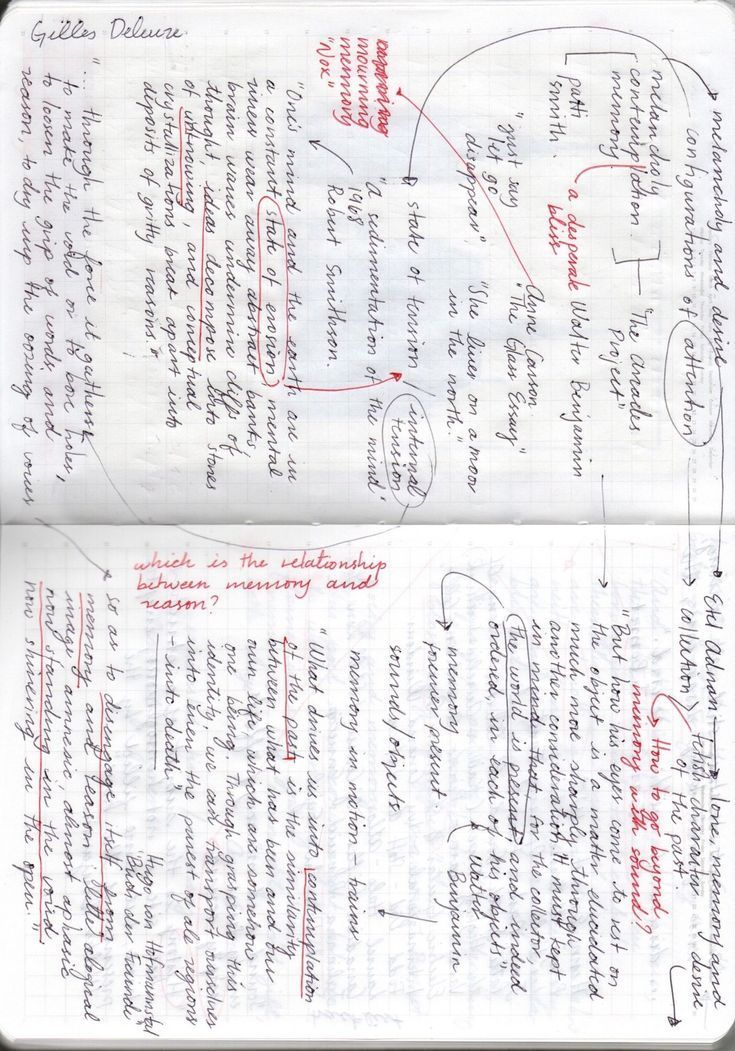 melancholy and desire
configurations of attention
melancholy
contemplation
memory.
"The Arcades
Project"
patti
smith.
a desperate
bliss
Walter Benjamin
"just say
let go
disappear"
Anne Carson
"The Glass Essay"
"She lives on a moor
in the north."
mourning
memory
"Nox"
state of tension / internal
tension
"A sedimentation of the mind"
1968
Robert Smithson.
"One's mind and the earth are in
a constant state of erosion, mental
rivers wear away abstract banks,
brain waves undermine cliffs of
thought, ideas decompose into stones
of unknowing, and conceptual
crystallizations break apart into
deposits of gritty reasons"
Gilles Deleuze.
"... through the force it gathers
to mate the void or to bore holes,
to loosen the grip of words and
reason, to dry up the oozing of voices
Etel Adnan → love, memory and
desire
collection > fetish character
of the past.
How to go beyond
memory with sound?
"But how his eyes come to rest on
the object is a matter elucidated
much more sharply through
another consideration. It must kept
in mind that for the collector,
the world is present, and indeed
ordered, in each of his objects"
Walter
Benjamin
memory
forever present.
sounds/objects
memory in motion - trains
"What drives us into contemplation
of the past is the similarity
between what has been and
our life, which are somehow
one being. Through grasping this
identity, we can transport ourselves
into even the purest of all regions
- into death"
Hugo von Hofmannsthal
"Buch der Freunde"
which is the relationship
between memory and
reason?
so as to disengage itself from
memory and reason: little alogical
image, amnesic, almost aphasic
now standing in the void,
now shivering in the open."